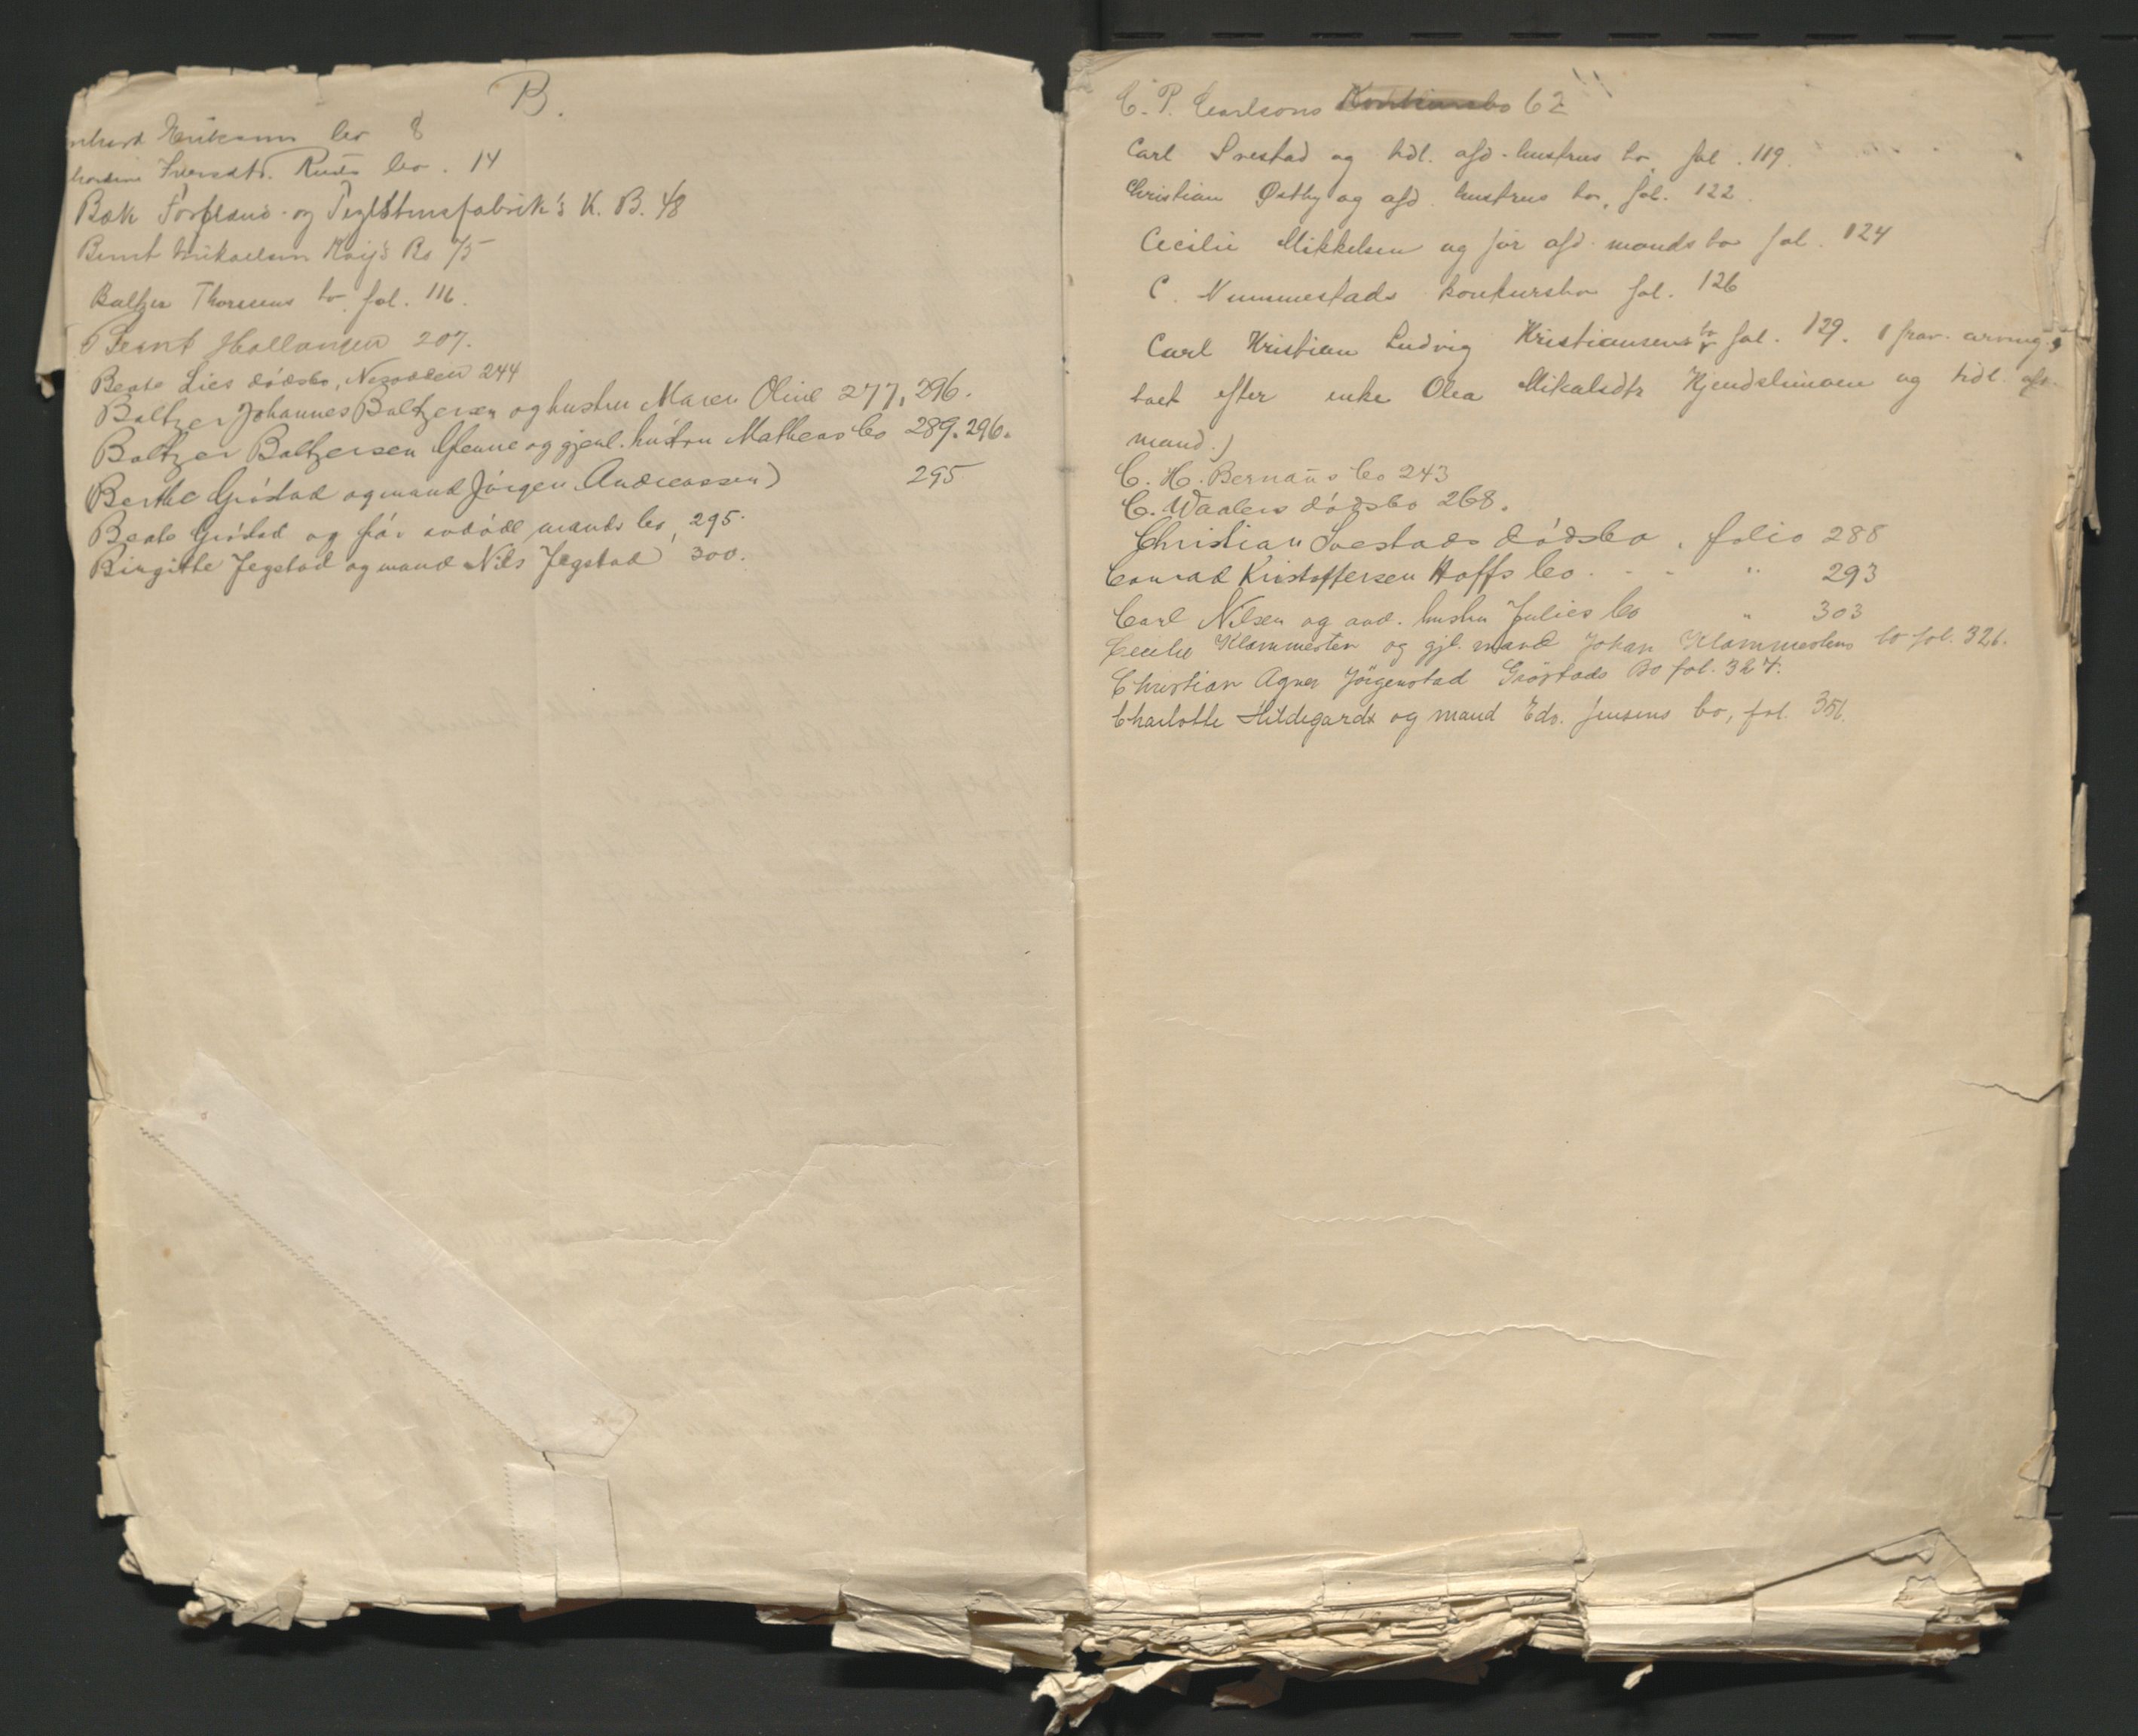 B.
Eriksens bo 8
Iversdtr. Ruds bo. 14
Bæk Torvstrø- og Teglstensfabrik's K. B. 48
Bernt Mikaelsen Bo 75
Baltzer Thorsens bo, fol. 116.
Bernt Hallangen 207.
Beate Lies dødsbo, Nesodden 244
Baltzer Johannes Baltzersen og hustru Maren Oline 277, 296.
Baltzer Baltzersen og gjenl. hustru Matheas bo 289. 296.
(Berthe Gröstad og mand Jørgen Andreassen) 295
Beate Gröstad og før avdöde mands bo, 295.
Birgitte Jegstad og mand Nils Jegstad 300.
C. P. Carlsens Konkursbo 62
Carl Svestad og tidl. afd. hustrus bo, fol. 119.
Christian Østby og afd. hustrus bo, fol. 122.
Cecilie Mikkelsen og før afd. mands bo fol. 124
C. Nummestads konkursbo fol. 126
Carl Kristian Ludvig Kristiansens bo fol. 129. (frav. arving i
boet efter enke Olea Mikalsdtr og tidl. afd.
mand.)
C. H. Bernan̄s bo 243
C. Waalers dødsbo 268.
Christian Svestads dødsbo, folio 288
Conrad Kristoffersen Hoffs bo. - - " 293
Carl Nilsen og avd. hustru Julies bo " 303
Cecilie Klommesten og gjl. mand Johan Klommestens bo fol. 326.
Christian Agner Jörgenstad Gröstads Bo fol. 327.
Charlotte Hildegards og mand Edv. Jensens bo, fol. 356.